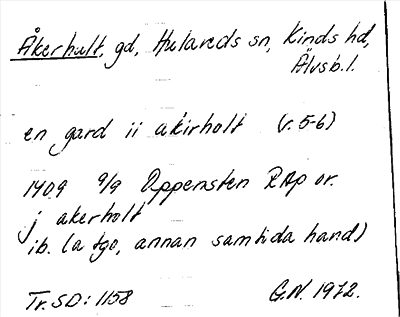 Åkerhult, gd, Hulareds sn, Kinds hd,
Älvsb. l.
en gard ii akirholt (r. 5-6)
1409 9/9 Oppensten RAp or.
j akerholt
ib. (a tgo, annan samtida hand)
Tr. SD: 1158 G.N. 1972.